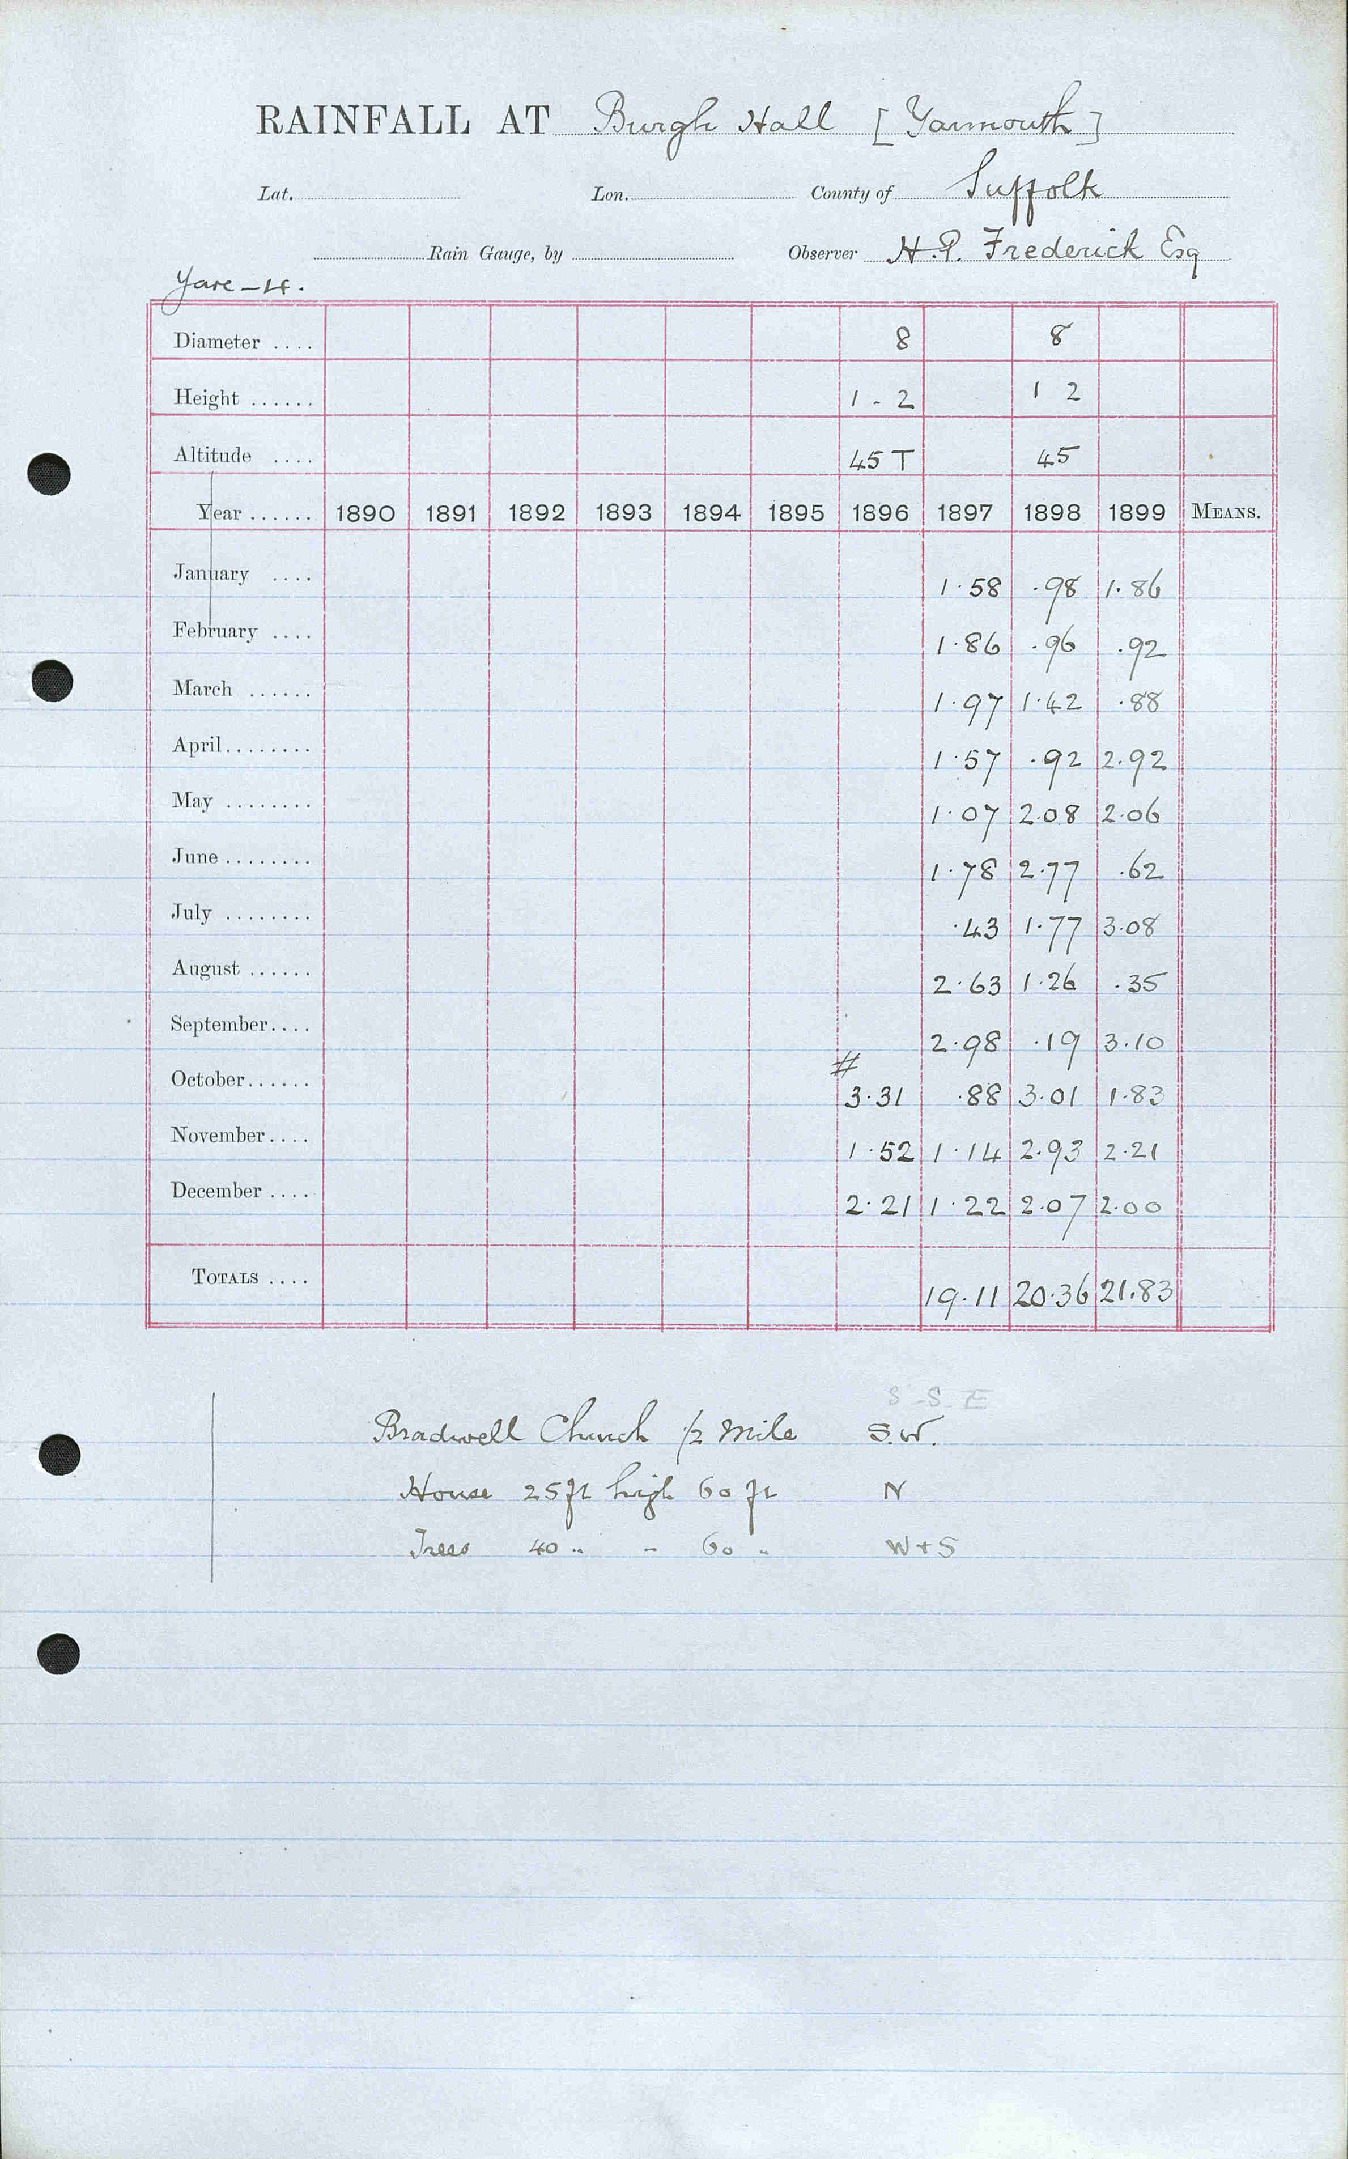 RAINFALL AT Burgh Hall [Yarmouth]
Lat. Lon. County of Suffolk
Rain Gauge, by Observer H.P. Frederick Esq
Yare - 4.
Diameter .... 8 8
Height ...... 1 - 2 1 2
Altitude .... 45 T 45
Year ...... 1890 1891 1892 1893 1894 1895 1896 1897 1898 1899 MEANS.
January .... 1.58 .98 1.86
February .... 1.86 .96 .92
March ...... 1.97 1.42 .88
April........ 1.57 .92 2.92
May ........ 1.07 2.08 2.06
June ........ 1.78 2.77 .62
July ........ .43 1.77 3.08
August ...... 2.63 1.26 .35
September.... 2.98 .19 3.10
#
October...... 3.31 .88 3.01 1.83
November.... 1.52 1.14 2.93 2.21
December .... 2.21 1.22 2.07 2.00
TOTALS .... 19.11 20.36 21.83
S-S-E
Bradwell Church 1/2 mile S.W.
House 25ft high 60 ft N
Trees 40 " - 60 " W+S